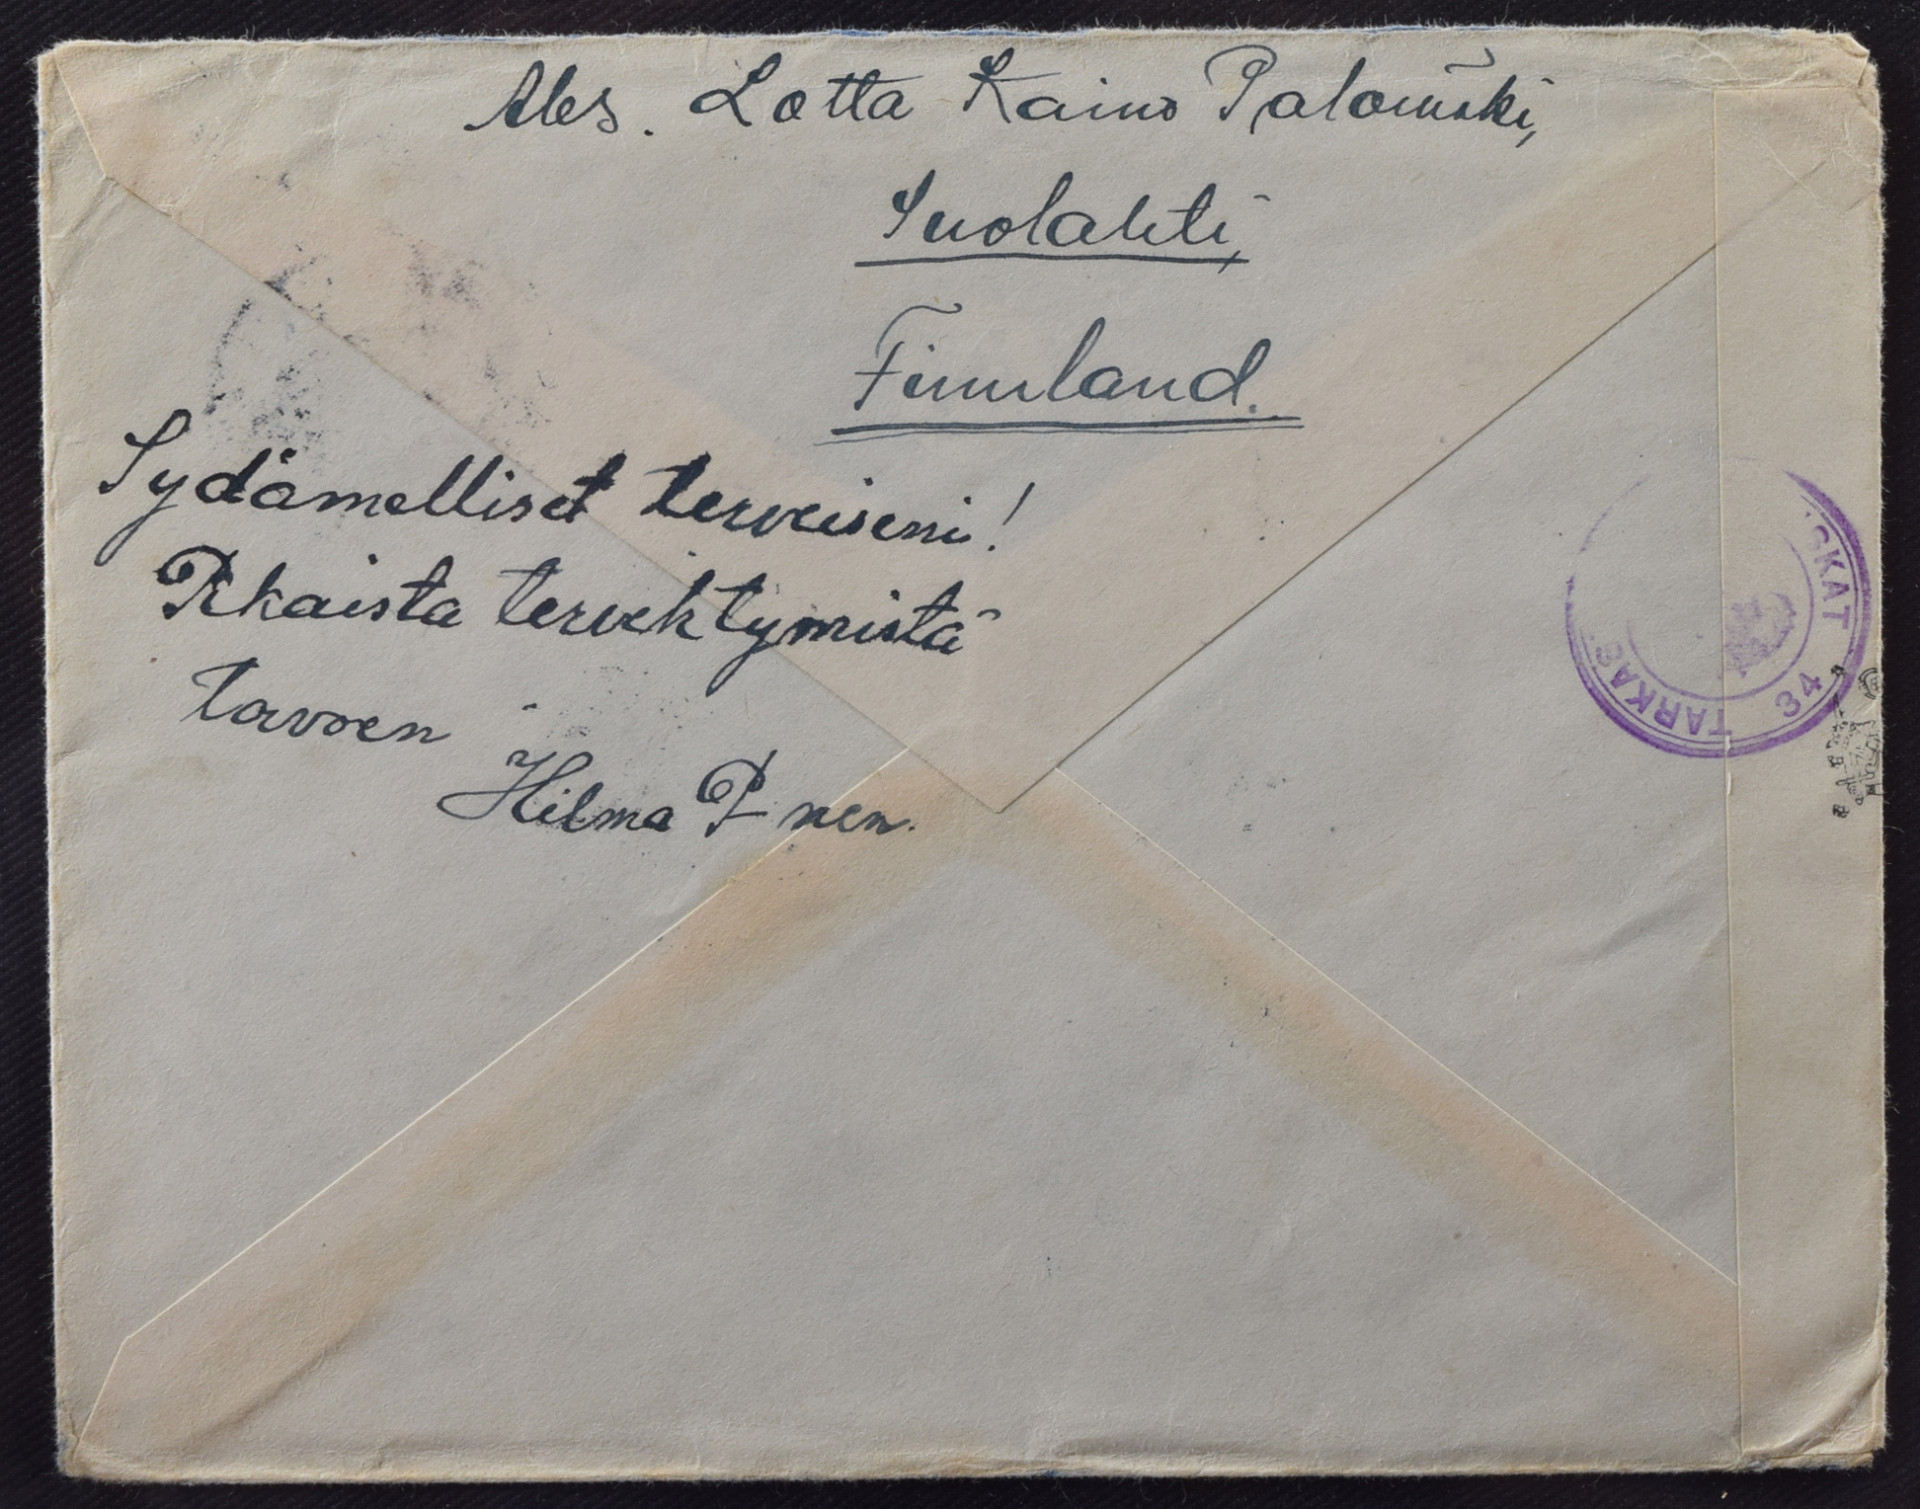 Abs. Lotta Kaino Palomäki,
Suolahti,
Finnland.
Sydämelliset terveiseni!
Pikaista tervehtymistä
toivoen
Hilma P-nen.
TARKAS SKAT 34